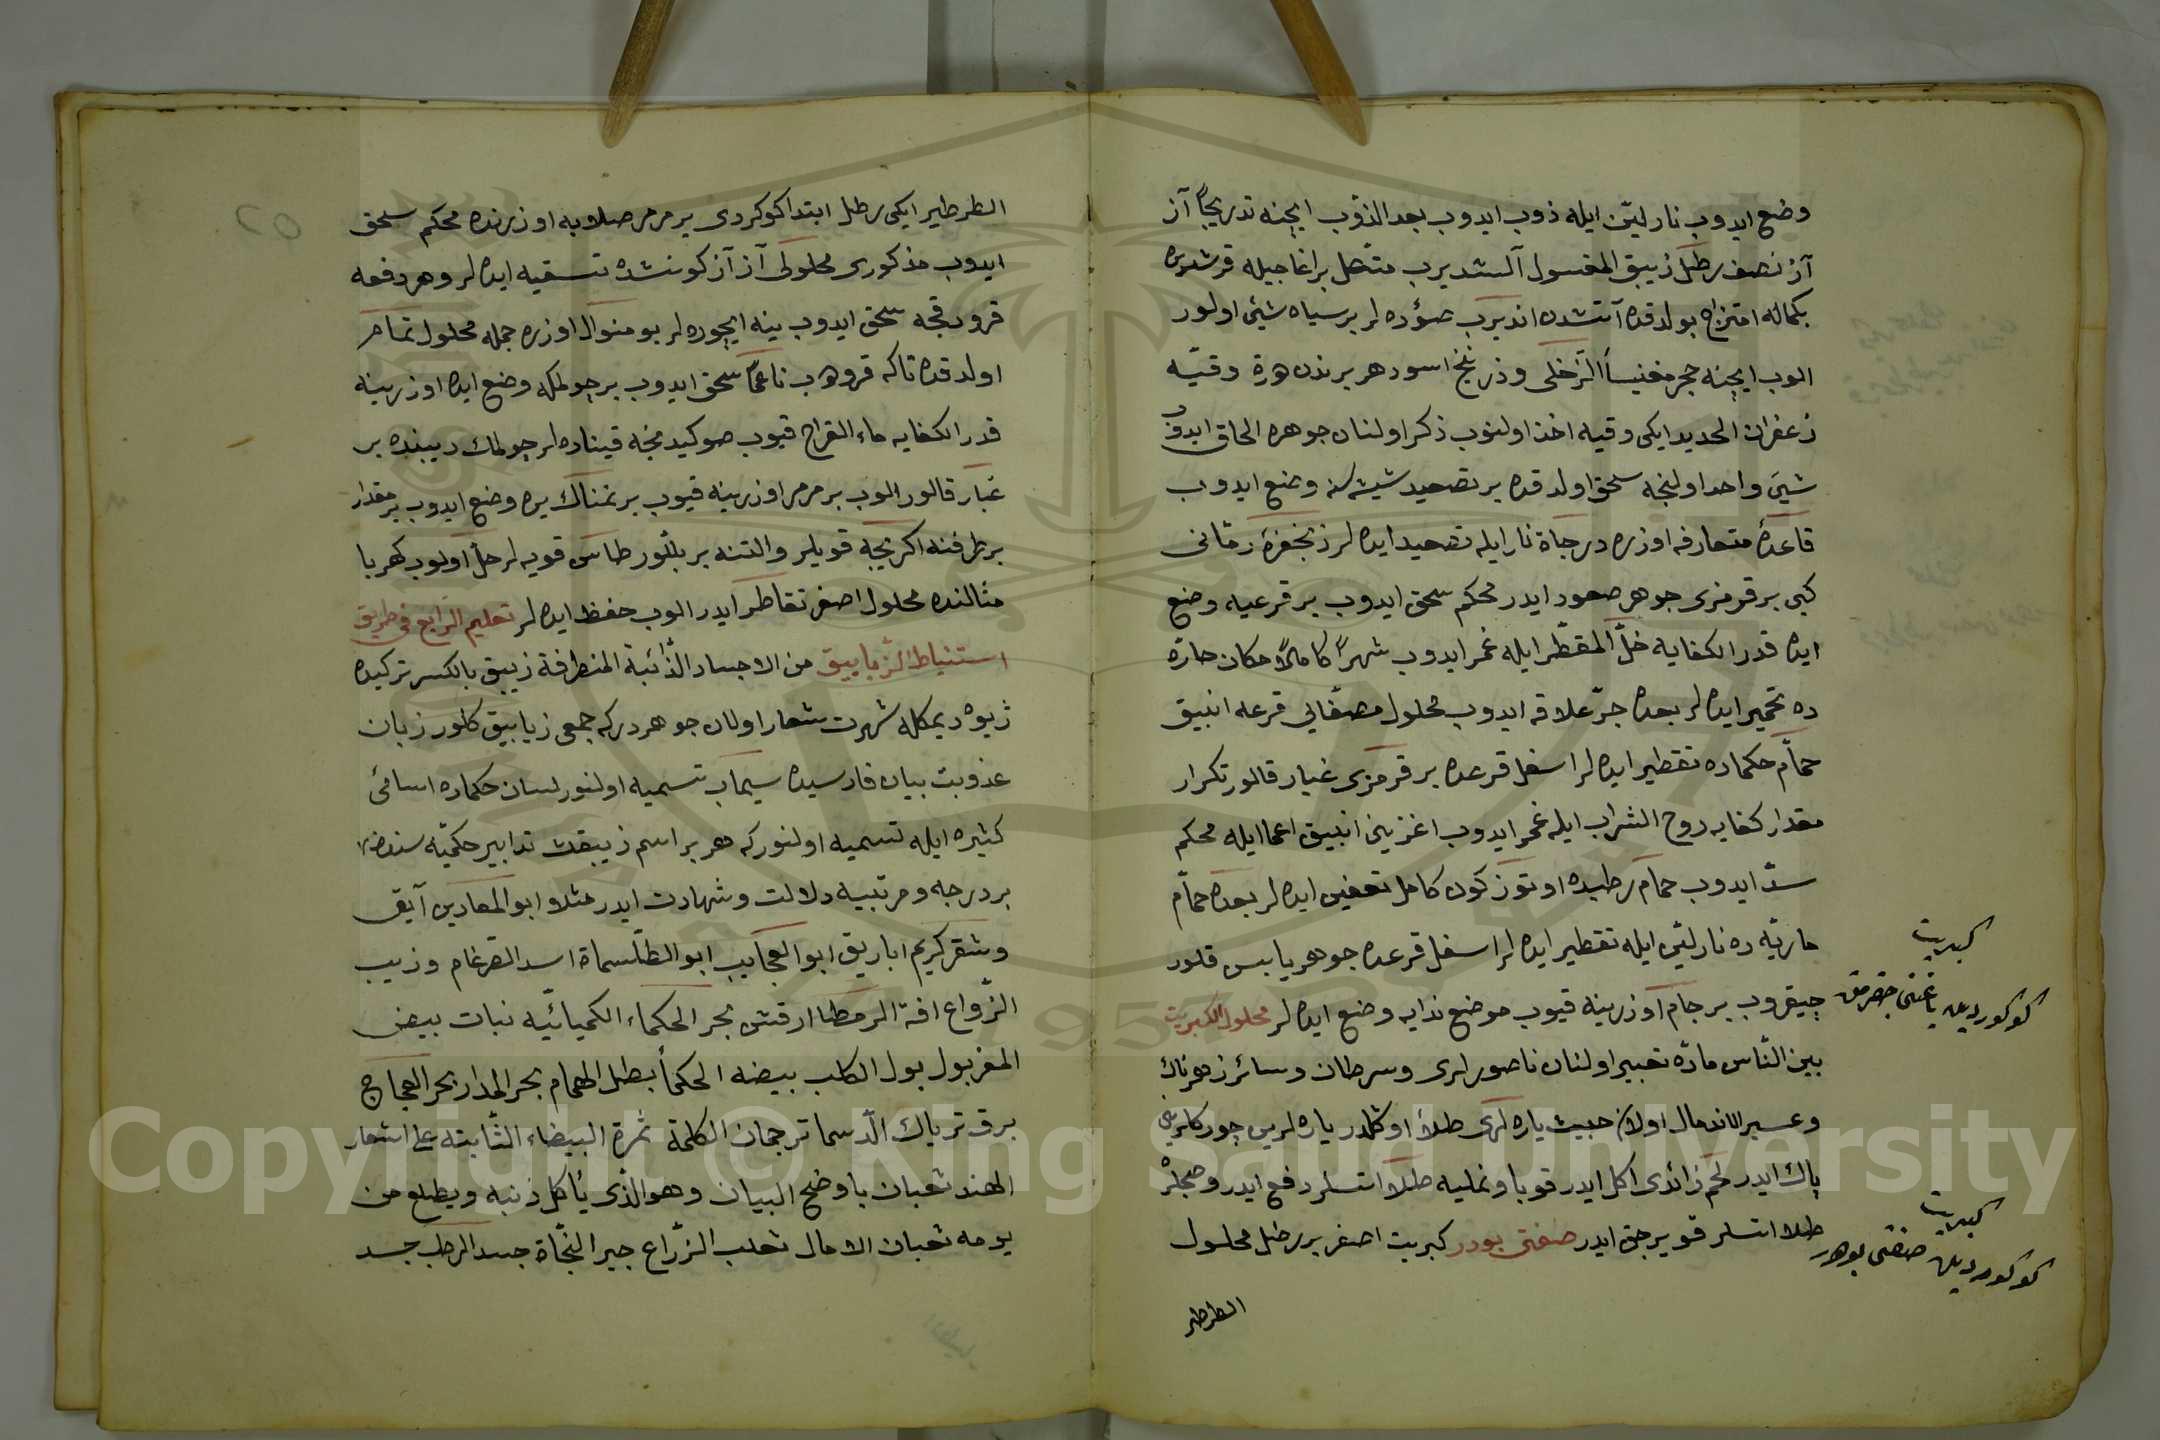 وضع ايدوب نار لين ايله ذوب ايدوب بعد الذوب ايچنه تدريجاً آز
آز نصف رطل زيبق المغسول آلشديرب متصل براغاجيله قرشديره
بكماله امتزاج بولدقده آتشدن انديرب صؤده لر بر سياه شئ اولور
الوب ايچنه حجر مغنيسأ الزخلى و زرنيخ اسود هر برندن وقيّه
زعفران الحديد ايكى وقيه اخذ اولنوب ذكر اولنان جوهره الحاق ايدوب
شئ واحد اولنجه سحق اولدقده بر تصعيد شيشه سنه وضع ايدوب
قاعدهٔ متعارفه اوزره درجاة نار ايله تصعيد ايده لر زنجفرهٔ رمّانى
كبى بر قرمزى جوهر صعود ايدر محكم سحق ايدوب بر قرعيه وضع
ايده قدر الكفايه خلّ المقطّر ايله غمر ايدوب شهراً كاملاً مكان حارّه
ده تخمير ايده لر بعده جرّ علاقه ايدوب محلول مصفّايى قرعه انبيق
حمّام حكماده تقطير ايده لر اسفل قرعده بر قرمزى غبار قالور تكرار
مقدار كفايه روح الشراب ايله غمر ايدوب اغزينى انبيق اعما ايله محكم
سدّ ايدوب حمام رطبده اوتوز كون كامل تعفين ايده لر بعده حمّام
ماريّه ده نار لين ايله تقطير ايده لر اسفل قرعده جوهر يابس قلور
چيقروب بر جام اوزرينه قيوب موضع ندايه وضع ايده لر محلول الكبريت
بين النّاس مادّه تعبير اولنان ناصورلرى و سرطان و سائر زهرناك
و عسير الاندمال اولان خبيث ياره لرى طلاً اوكلدر ياره لرين چوركلرينى
پاك ايدر لحم زائدى اكل ايدر قوبا و نمليه طلا اتسلر دفع ايدر و صچلره
طلا اتسلر قويرجق ايدر صنعتى بودر كبريت اصفر بر رطل محلول
الطرطير
كبريت
كوكوردين ياغنى چقرمق
كبريت
كوكوردين صنعتى بودر
الطرطير ايكى رطل ابتدا كوكردى بر مرمر صلايه اوزرنده محكم سحق
ايدوب مذكورى محلولى آز آز كونشده تسقيه ايده لر و هر دفعه
قرودقجه سحق ايدوب ينه ايچوره لر بو منوال اوزره جمله محلول تمام
اولدقده تاكه قروپ ناعماً سحق ايدوب بر چولمكه وضع ايده اوزرينه
قدر الكفايه ماء القراح قيوب صو كيدنجه قيناده لر چولمك ديبنده بر
غبار قالور الوب بر مرمر اوزرينه قيوب بر نمناك يره وضع ايدوب بر مقدار
بر طرفنه اكريجه قويلر و التنه بر بلّور طاس قويه لر حلّ اولوب كهربا
مثالنده محلول اصفر تقاطر ايدر الوب حفظ ايده لر تعليم الرّابع فى طريق
استنباط الزيابيق من الاجساد الذّائبة المنطرفة زيبق بالكسر تركيده
ژيوه ديمكله شهرت شعار اولان جوهردركه جمعى زيابيق كلور زبان
عذوبت بيان فارسيده سيماب تسميه اولنور لسان حكماده اسامئ
كثيره ايله تسميه اولنوركه هر بر اسم زيبقك تدابير حكميّه سنده
بر درجه و مرتبيه دلالت و شهادت ايدر مثلا ابو المعادين آبق
و شقر كريم اباريق ابو العجايب ابو الطلسماة اسد الضرغام و زيب
الزّواع افة الرمطا ارقش بحر الحكماء الكميائيّه نبات بيض
المغربول بول الكلب بيضه الحكمأ بطل الهمام بحر المدار بحر العجاج
برق ترياك الدّسما ترجمان الكلمة ثمرة البيضاء الثّابته على اشعار
الهند ثعبان باوضح البيان و هو الذى يأكل ذنبه و يطلع من
يومه ثعبان الامال ثعلب الزّراع جير النجّاة جسد الرطب جسد